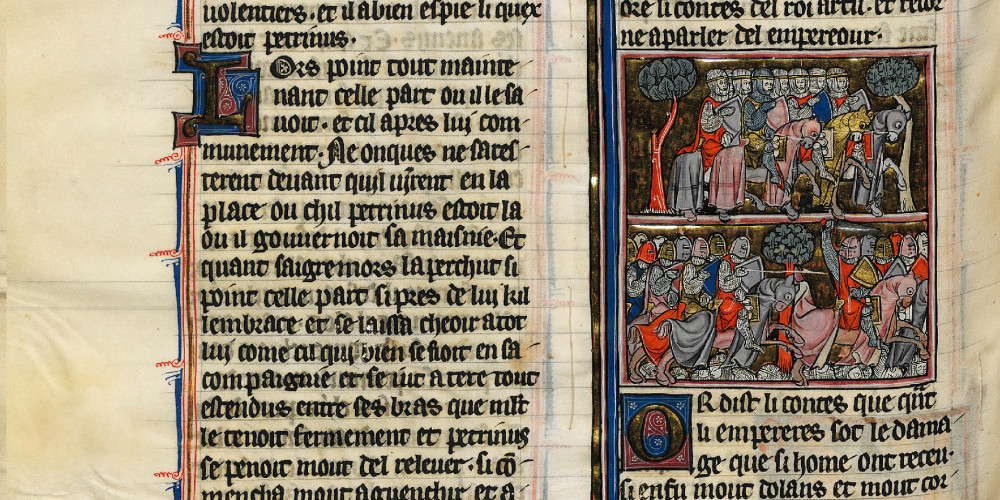 uolentiers. et il a bien espie li quex
estoit petrinus.
Lors point tout mainte
nant celle part ou il le sa
uoit. et cil apres luj com
munement. Ne onques ne sares
terent deuant qujl ujrent en la
place ou chil petrinus estoit la
ou il gouuernoit sa maisnie. Et
quant saigremors la perchut si
point celle part si pres de luj kil
lembrace et se laissa cheoir a tot
luj come cil quj bien se fioit en sa
compaignie et se iut a tere tout
estendus entre ses bras que mlt
le tenoit fermement et petrinus
se penoit mout del releuer. si cō
mencha mout a guenchir et a
ore li contes del roi artu. et
ne a parler del empereour.
OR dist li contes que qnt
li empereres sot le dama
ge que si home ont receu.
si en fu mout dolans et mout cor